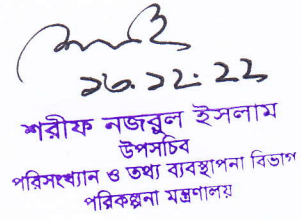 ২৬.১২.২২
শরীফ নজরুল ইসলাম
উপসচিব
পরিসংখ্যান ও তথ্য ব্যবস্থাপনা বিভাগ
পরিকল্পনা মন্ত্রণালয়